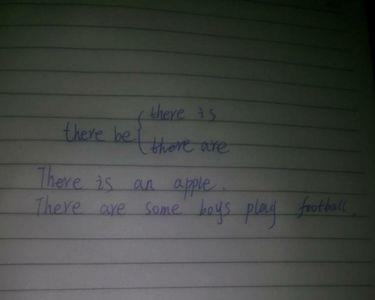 there is
there be {
there are
There is an apple.
There are some boys play football.